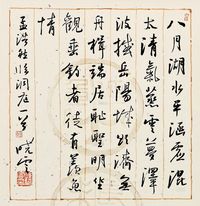 八月湖水平涵虛混
太清氣蒸雲夢澤
波撼岳陽城欲濟無
舟楫端居恥聖明坐
觀垂釣者徒有羨魚
情
孟浩然臨洞庭一首